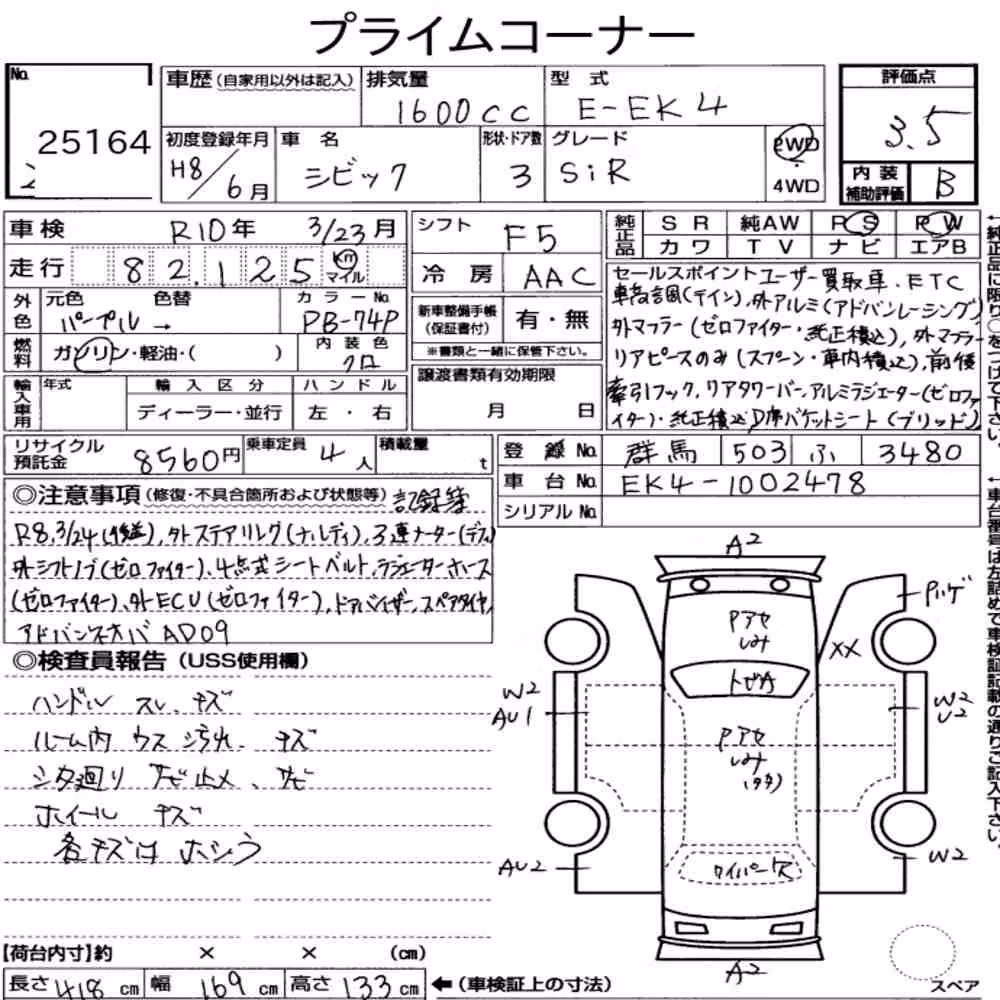 プライムコーナー
No.
25164
車歴 (自家用以外は記入)
排気量
1600cc
型 式
E-EK4
評価点
3.5
初度登録年月
H8/6月
車 名
シビック
形状・ドア数
3
グレード
SiR
2WD
4WD
内装補助評価
B
車検
R10年 3/23月
走行
82,125
km
マイル
シフト
F5
冷房
AAC
純正品
SR 純AW PS PW
カワ TV ナビ エアB
外色
元色
色替
カラーNo.
パープル →
PB-74P
燃料
ガソリン・軽油・( )
内装色
クロ
新車整備手帳
(保証書付)
有・無
※書類と一緒に保管下さい。
輸入車用
年式
輸入区分
ハンドル
ディーラー・並行
左・右
譲渡書類有効期限
月 日
セールスポイント ユーザー買取車、ETC
車高調(テイン)、外アルミ(アドバンレーシング)
外マフラー(ゼロファイター・純正積込)、外マフラー
リアピースのみ(スプーン・車内積込)、前後
牽引フック、リアタワーバー、アルミラジエーター(ゼロファ
イター)・純正積込D席バケットシート(ブリッド)
リサイクル預託金
8560円
乗車定員
4人
積載量
t
登録No.
群馬 503 ふ 3480
車台No.
EK4-1002478
シリアルNo.
◎注意事項 (修復・不具合箇所および状態等) 記録簿
R8.3/24(後送)、外ステアリング(ナルディ)、3連メーター(デフィ)
外シフトノブ(ゼロファイター)、4点式シートベルト、ラジエーターホース
(ゼロファイター)、外ECU(ゼロファイター)、ドアバイザー、スペアタイヤ、
アドバンネオバAD09
◎検査員報告 (USS使用欄)
ハンドル スレ、キズ
ルーム内 ウス汚れ、キズ
シタ廻り サビ止メ、サビ
ホイール キズ
各キズ凹ホシュウ
A2
Pハゲ
Pアセ
しみ
XX
トビA
W2
AU1
W2
U2
Pアセ
しみ
AU2
W2
ワイパーキズ
A2
スペア
【荷台内寸】約 × × (cm)
長さ 418 cm 幅 169 cm 高さ 133 cm
←(車検証上の寸法)
←純正品に限り○をつけて下さい。
←車台番号は左詰めで車検証記載の通りご記入下さい。